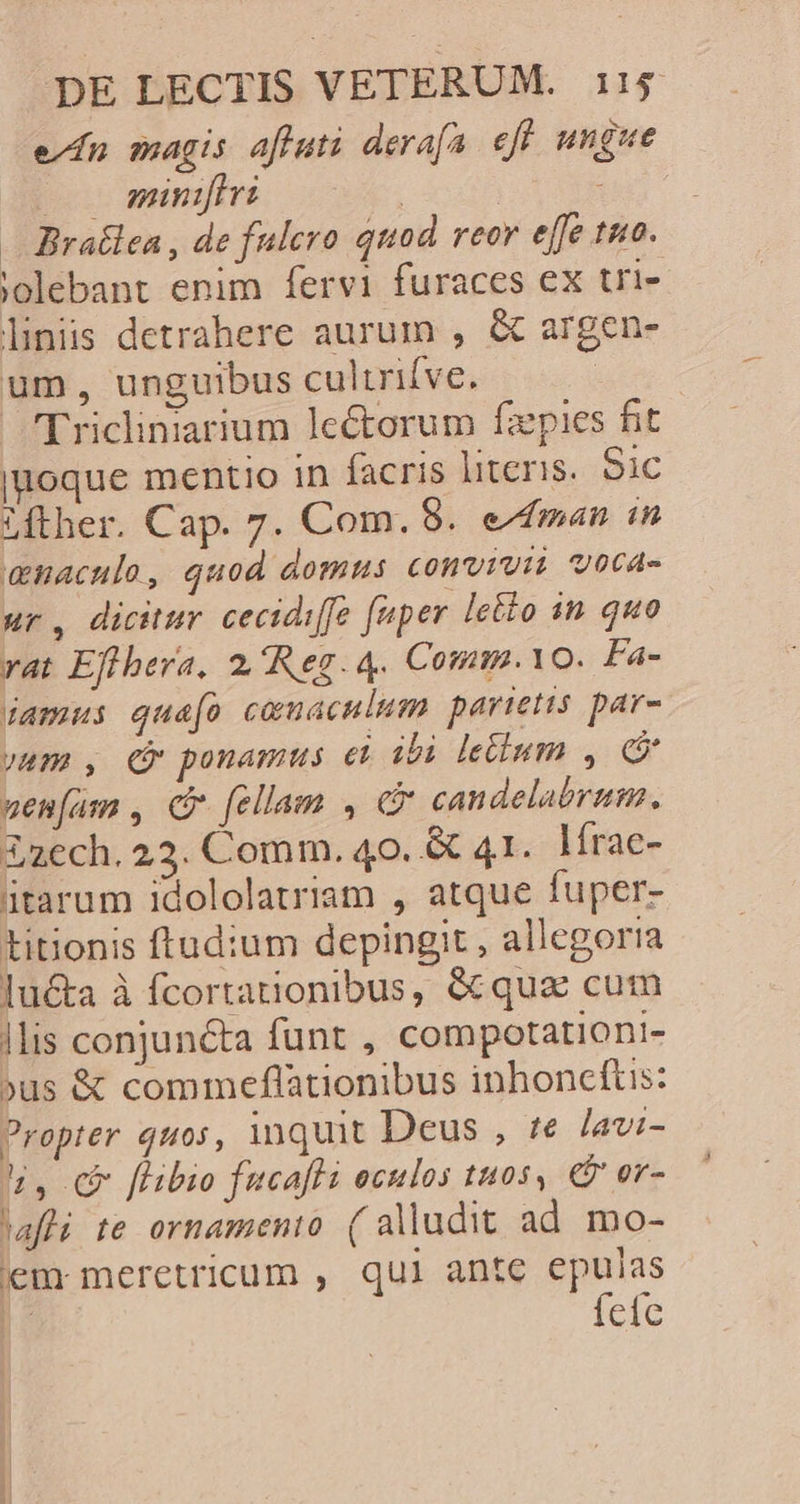 DE LECTIS VETERUM. 115
An magis aſtuti deraſa eſt ungue
miniſtri
Bractea, de fulcro quod reor eſſe tuo.
olebant enim ſervi furaces ex tri-
liniis detrahere aurum, & argen-
um, unguibus cultriſve.
Tricliniarium lectorum ſæpies fit
uoque mentio in ſacris literis. Sic
ſther. Cap. 7. Com. 8. Aman in
œnaculo, quod domus convivii voca-
ur, dicitur cecidiſſe ſuper lecto in quo
rat Eſthera, 2 Reg. 4. Comm. 10. Fa-
iamus quaſo cœnaculum parietis par-
um, & ponamus ei ibi lectum, &
menſam, & ſellam, & candelabrum.
Ezech. 23. Comm. 40. & 41. Iſrae-
itarum idololatriam, atque ſuper-
titionis ſtudium depingit, allegoria
ucta à ſcortationibus, & quæ cum
llis conjuncta ſunt, compotationi-
us & commeſſationibus inhoneſtis:
Propter quos, inquit Deus, te lavi-
i, & ſtibio fucaſti oculos tuos, & or-
aſti te ornamento (alludit ad mo-
em meretricum, qui ante epulas
ſeſe